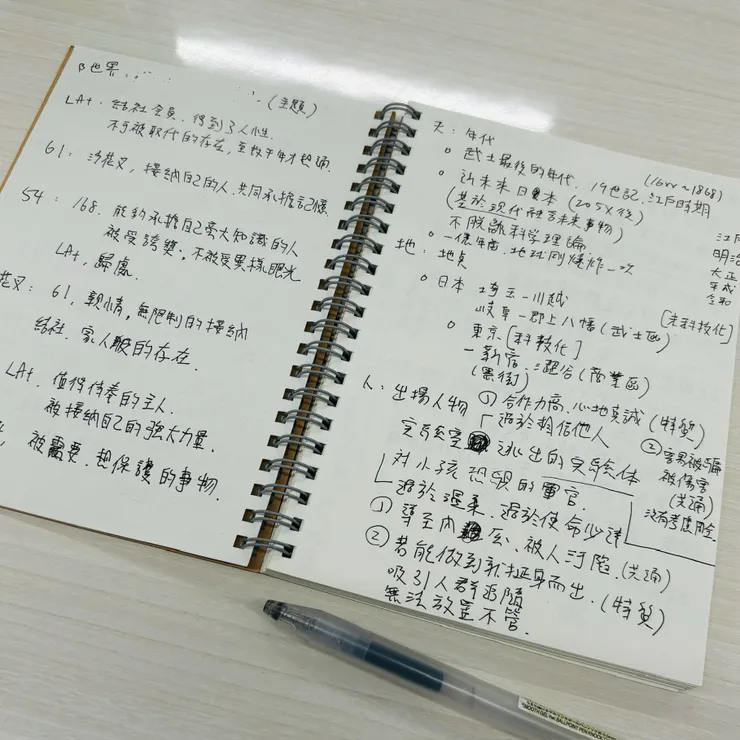 β世界
(主題)
LA+. 結社会員. 得到了人性.
不可被取代的存在,
61: 接納自己的人. 共同承擔記憶
54: 168. 能夠承擔自己龐大知識的人
被受誇獎. 不被受異樣眼光
LA+. 歸處.
61, 親情, 無限制的接納
結社. 家人般的存在.
LA+. 值得侍奉的主人.
被接納自己的強大力量.
被需要. 想保護的事物.
天: 年代
武士最後的年代. 19世記. 江戶時期
(16xx~1868)
近未來日本 (205X後)
(基於現代融合未來事物)
不脫離科学理論
一億年前. 地球剛爆炸一次
江戶
明治
大正
平成
令和
地: 地點
日本 埼玉一川越
[未科技化]
岐阜一郡上八幡 (武士區)
東京 [科技化]
一新宿. 澀谷 (商業區)
(黑街)
人: 出場人物
① 合作力高. 心地真誠 (特質)
過於相信他人
② 容易被騙
被傷害
(共通)
逃出的实驗体
沒有考慮周全
对小孩恐惧的軍官.
過於溫柔. 過於使命必達
① 導至內 被人 (共通)
② 若能做到就挺身而出. (特質)
吸引人群追隨
無法放置不管.